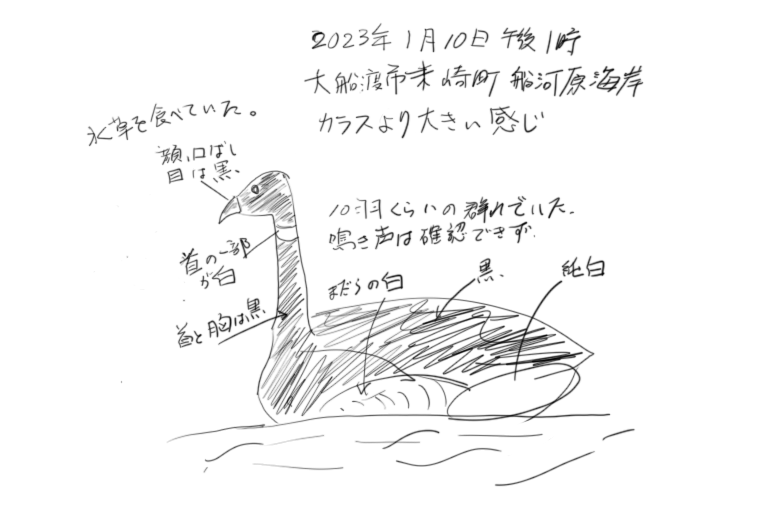 2023年1月10日 午後1時
大船渡市末崎町 船河原海岸
カラスより大きい感じ
水草を食べていた。
顔、口ばし
目は黒、
10羽くらいの群れでいた。
鳴き声は確認できず。
首の一部
が白
まだらの白
黒、
純白
首と胸は黒、